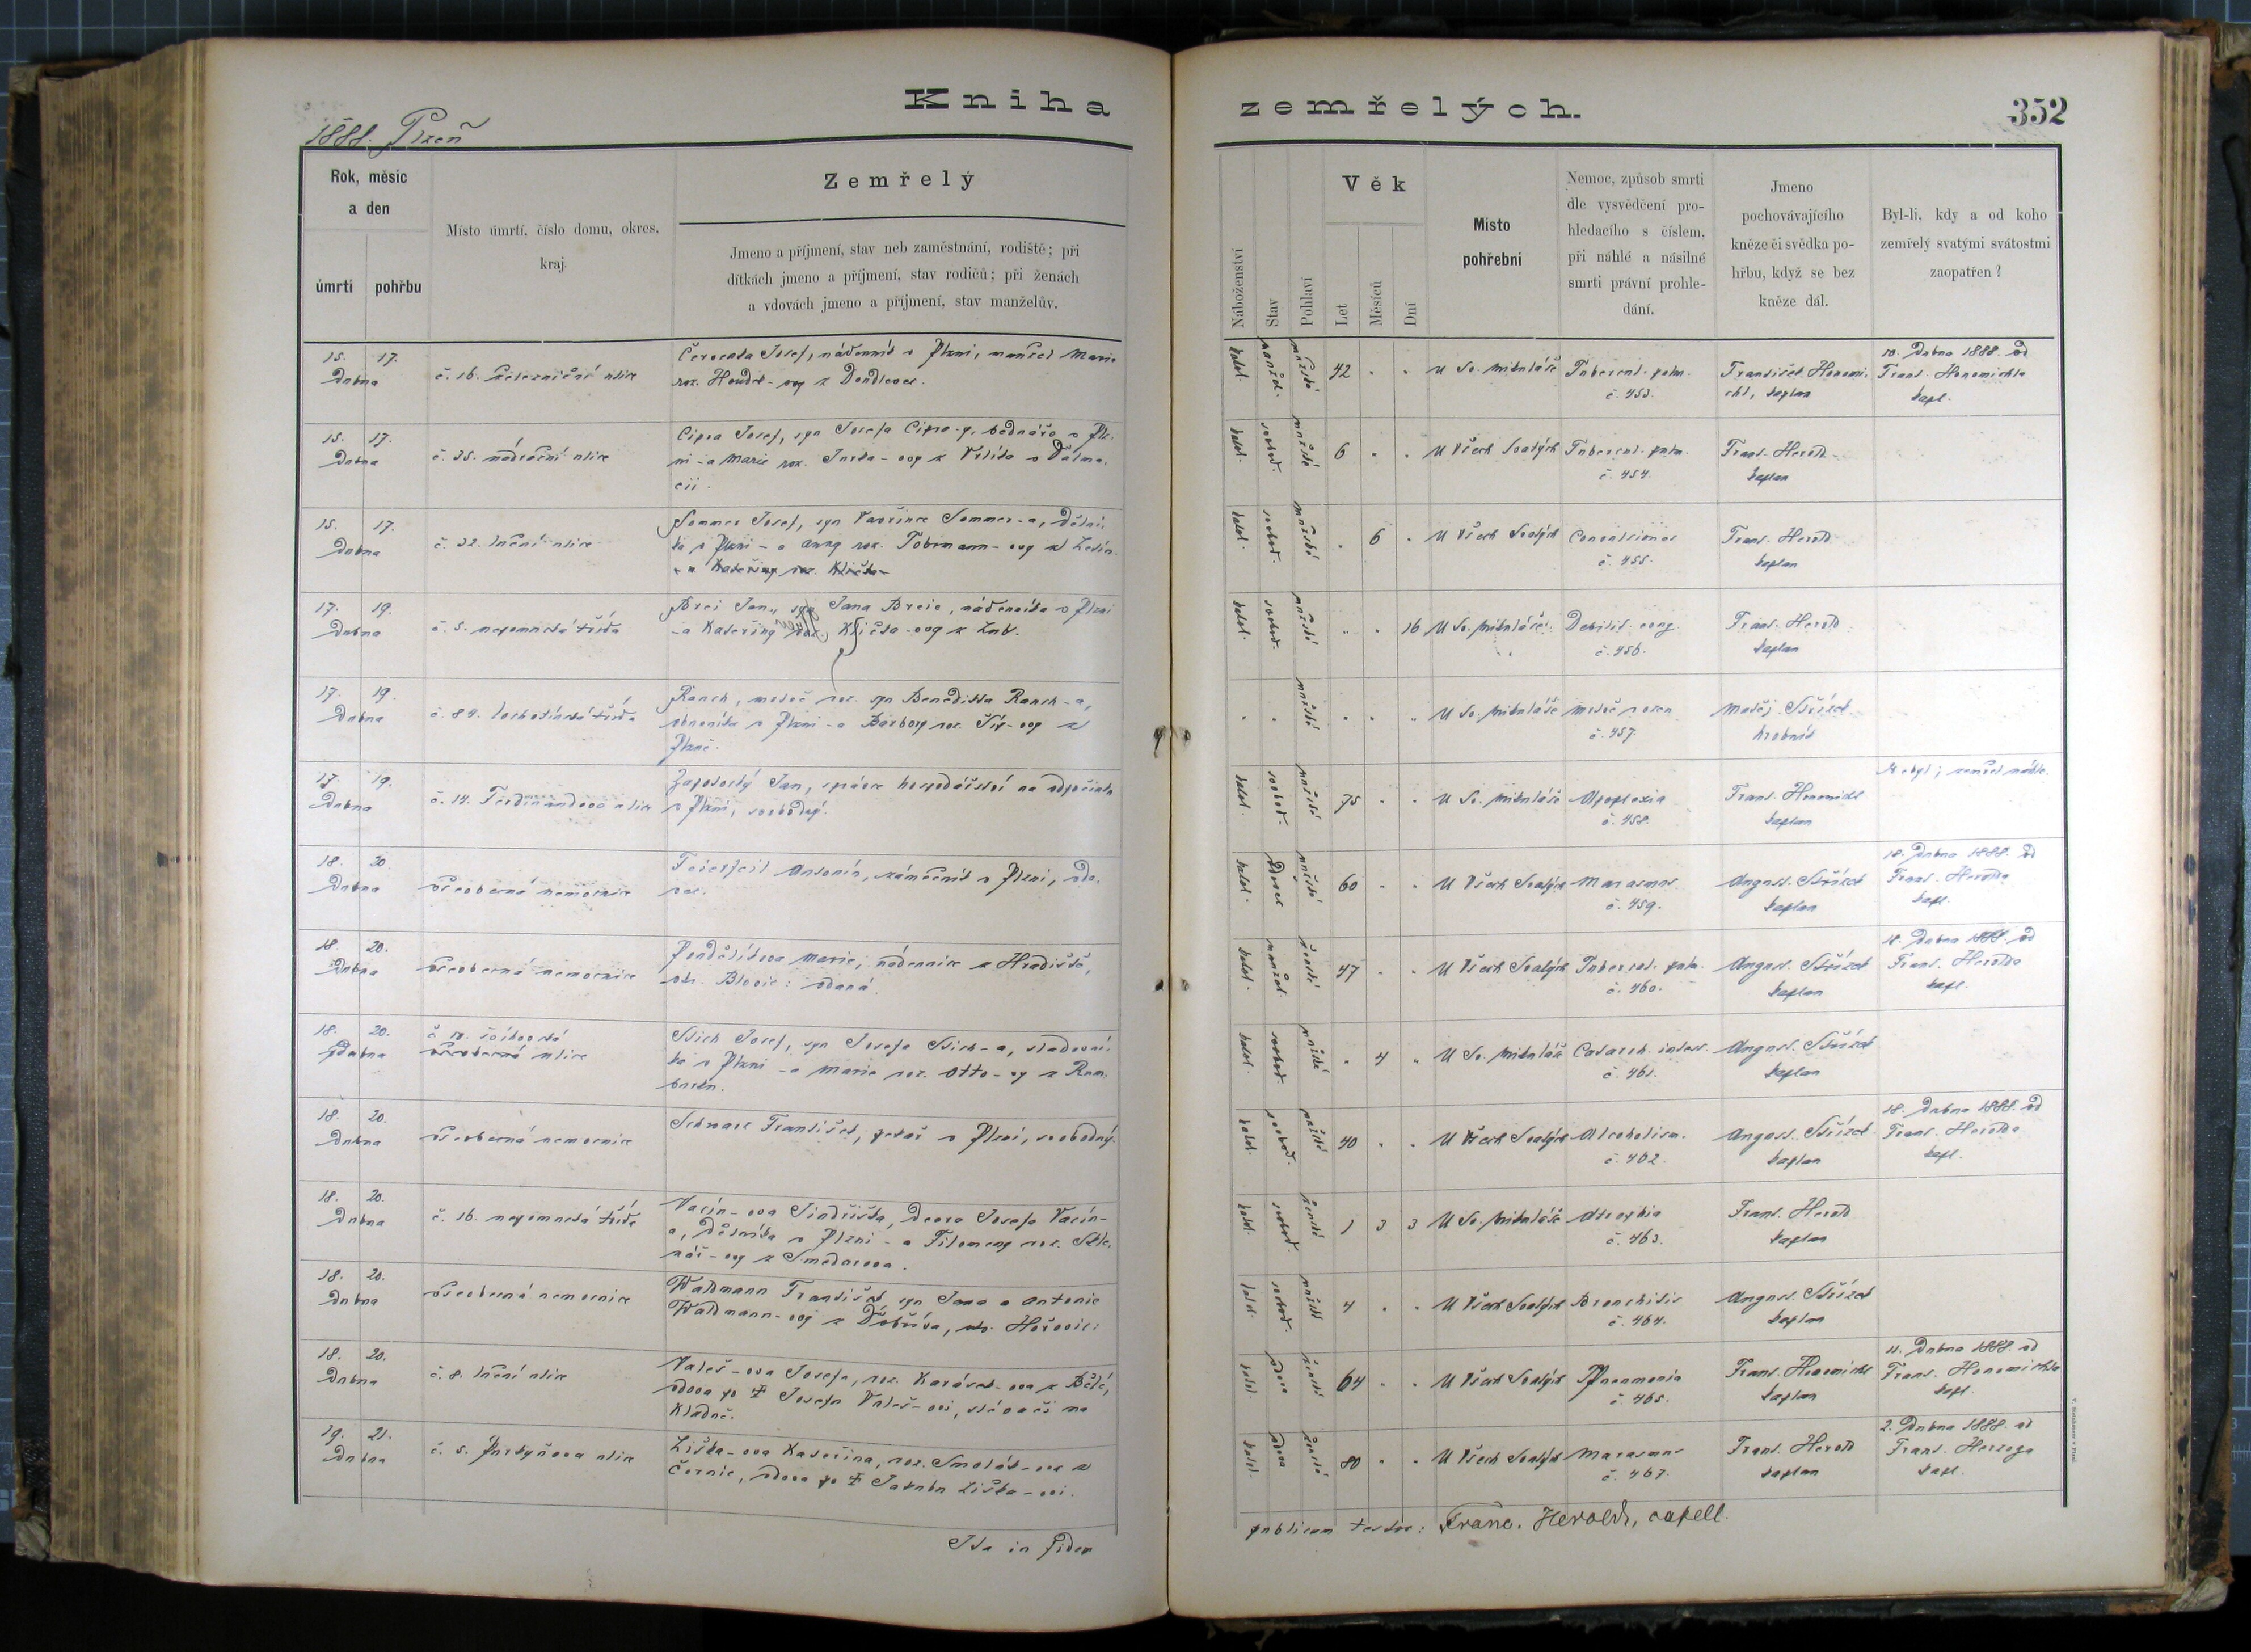 Kniha
zemřelých.
352
1888. Plzeň
Rok, měsíc
a den
úmrtí
pohřbu
Místo úmrtí, číslo domu, okres,
kraj.
Zemřelý
Jmeno a příjmení, stav neb zaměstnání, rodiště; při
dítkách jmeno a příjmení, stav rodičů; při ženách
a vdovách jmeno a příjmení, stav manželův.
Náboženství
Stav
Pohlaví
Věk
Let
Měsíců
Dní
Místo
pohřební
Nemoc, způsob smrti
dle vysvědčení pro-
hledacího s číslem,
při náhlé a násilné
smrti právní prohle-
dání.
Jmeno
pochovávajícího
kněze či svědka po-
hřbu, když se bez
kněze dál.
Byl-li, kdy a od koho
zemřelý svatými svátostmi
zaopatřen?
15. 17.
Dubna
č. 16. železniční ulice
Červenka Josef, nádenník v Plzni, manžel Marie
roz. Houdek-ovy z Doudlevec.
katol. manžel. mužské 42 " "
U Sv. Mikuláše
Tubercul. pulm.
č. 453.
František Honomi-
chl, kaplan
10. Dubna 1888. od
Frant. Honomichla
kapl.
15. 17.
Dubna
č. 35. nádražní ulice
Cipra Josef, syn Josefa Cipra-y, bednáře v Plz-
ni - a Marie roz.
cii.
katol. svobod. mužské 6 " "
U Všech Svatých
Tubercul. pulm.
č. 454.
Frant. Herold
kaplan
15. 17.
Dubna
č. 32. luční ulice
Sommer Josef, syn Vavřince Sommer-a, dělní-
ka v Plzni - a Anny roz. Tobrmann-ovy z
a Kateřiny roz. Klička
katol. svobod. mužské " 6 "
U Všech Svatých
Convulsiones
č. 455.
Frant. Herold
kaplan
17. 19.
Dubna
č. 5. nepomucká třída
Brei Jan, syn Jana Breie, nádenníka v Plzni
- a Kateřiny roz. Klička-ovy z Lub.
katol. svobod. mužské " " 16
U Sv. Mikuláše
Debilit. cong.
č. 456.
Frant. Herold
kaplan
17. 19.
Dubna
č. 84. lochotínská třída
Rauch, mrtvě roz. syn Benedikta Rauch-a,
obuvníka v Plzni - a Barbory roz. Šíp-ovy z
Plzně.
" " mužské " " "
U Sv. Mikuláše
mrtvě rozen
č. 457.
Matěj Střízek
hrobník
17. 19.
Dubna
č. 14. Ferdinandova ulice
Zapotocký Jan, správce hospodářství na odpočinku
v Plzni, svobodný.
katol. svobod. mužské 75 " "
U Sv. Mikuláše
Apoplexia
č. 458.
Frant. Honomichl
kaplan
Nebyl; zemřel náhle.
18. 20.
Dubna
všeobecná nemocnice
Feierfeil Antonín, zámečník v Plzni, vdo-
vec.
katol. vdovec mužské 60 " "
U Všech Svatých
Marasmus
č. 459.
August. Střízek
kaplan
18. Dubna 1888. od
Frant. Herolda
kapl.
18. 20.
Dubna
všeobecná nemocnice
Pondělíkova Marie, nádennice z Hradiště,
okr. Blovic: vdaná.
katol. manžel. ženské 47 " "
U Všech Svatých
Tubercul. pulm.
č. 460.
August. Střízek
kaplan
18. Dubna 1888. od
Frant. Herolda
kapl.
18. 20.
Dubna
všeobecná ulice
Stich Josef, syn Josefa Stich-a, sladovní-
ka v Plzni - a Marie roz. Otto-vy z Rum-
burku.
katol. svobod. mužské " 4 "
U Sv. Mikuláše
Catarrh. intest.
č. 461.
August. Střízek
kaplan
18. 20.
Dubna
všeobecná nemocnice
Schwarz František, pekař v Plzni, svobodný.
katol. svobod. mužské 40 " "
U Všech Svatých
Alcoholism.
č. 462.
August. Střízek
kaplan
18. Dubna 1888. od
Frant. Herolda
kapl.
18. 20.
Dubna
č. 16. nepomucká třída
Vacín-ova Jindřiška, dcera Josefa Vacín-
a, dělníka v Plzni - a Filomeny roz.
-ovy z Smedorova.
katol. svobod. ženské 1 3 3
U Sv. Mikuláše
Atrophia
č. 463.
Frant. Herold
kaplan
18. 20.
Dubna
všeobecná nemocnice
Waldmann František, syn Jana a Antonie
Waldmann-ovy z Dobříva, okr. Hořovic:
katol. svobod. mužské 4 " "
U Všech Svatých
Bronchitis
č. 464.
August. Střízek
kaplan
18. 20.
Dubna
č. 8. luční ulice
Valeš-ova Josefa, roz. Karásek-ova z Bělé,
vdova po † Josefu Valeš-ovi, slévači na
Kladně.
katol. vdova ženské 64 " "
U Všech Svatých
Pneumonia
č. 465.
Frant. Honomichl
kaplan
11. Dubna 1888. od
Frant. Honomichla
kapl.
19. 21.
Dubna
č. 5. Purkyňova ulice
Liška-ova Kateřina, roz. Smolák-ova z
Černic, vdova po † Jakubu Liška-ovi.
katol. vdova ženské 80 " "
U Všech Svatých
Marasmus
č. 467.
Frant. Herold
kaplan
2. Dubna 1888. od
Frant. Herzoga
kapl.
Ita in fidem
publicam testor: Franc. Herold, capell.